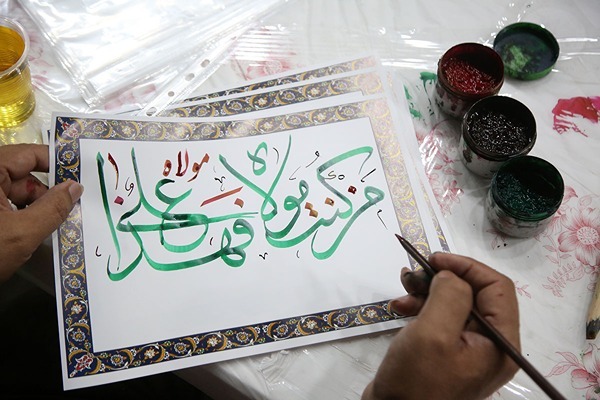 من كنت مولاه فهذا علي
مولاه